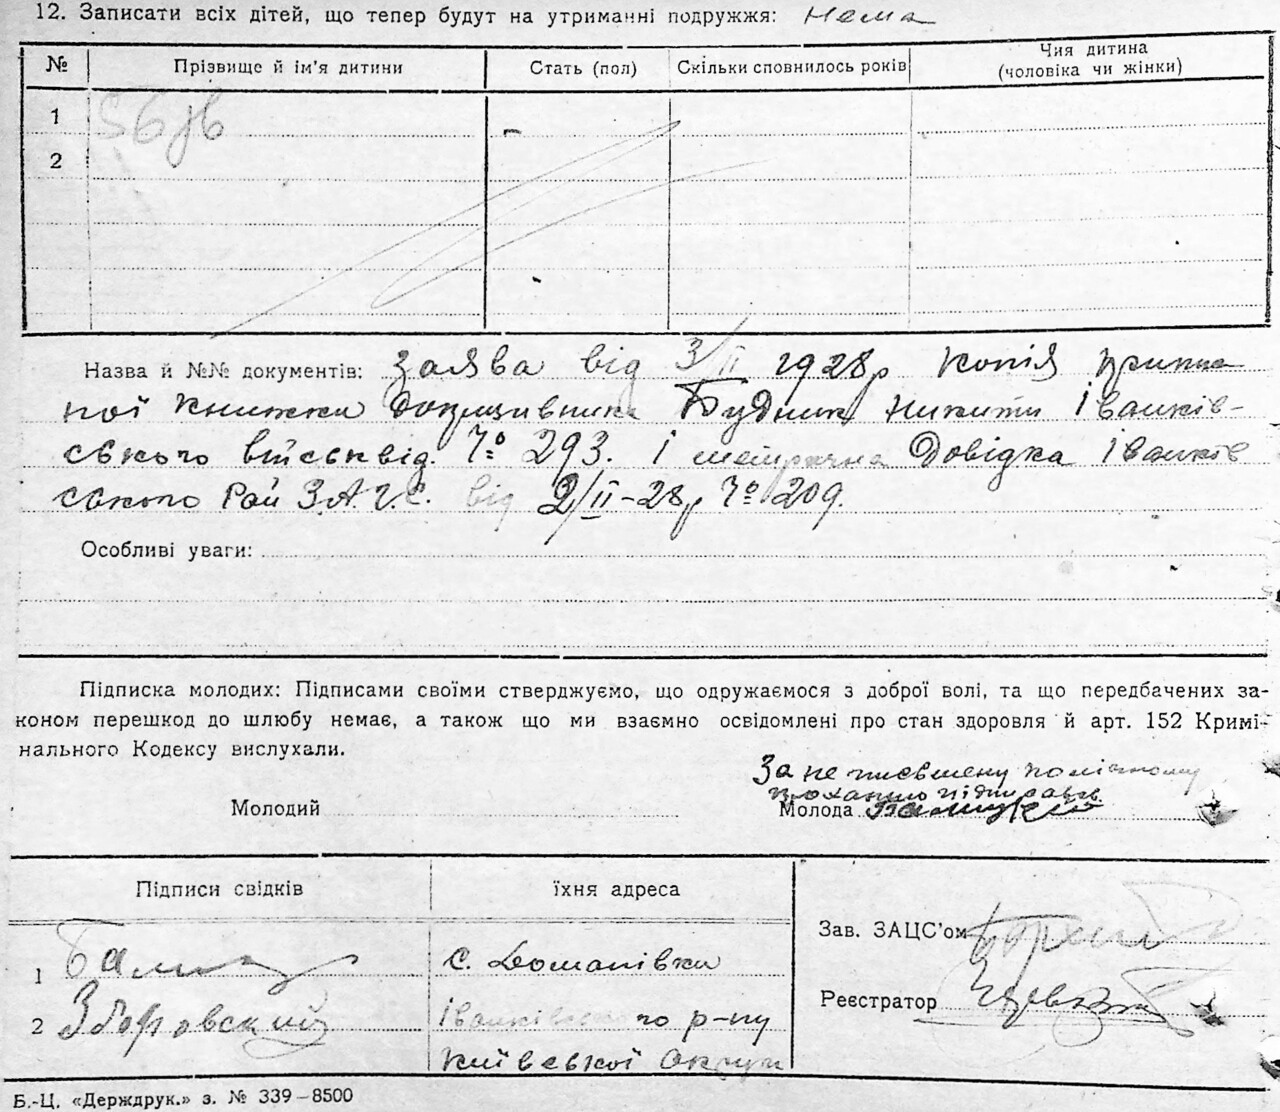 12. Записати всіх дітей, що тепер будут на утриманні подружжя: Нема
№ Прізвище й ім'я дитини Стать (пол) Скільки сповнилось років Чия дитина
(чоловіка чи жінки)
1
2
Назва й №№ документів: Заява від 3/II 1928р Копія
ної книжки допризивника Будник Никити Іванків-
ського військвід. № 293. і метрична Довідка Іванків
ського Рай З.А.Г.С. від 2/II-28р № 209.
Особливі уваги:
Підписка молодих: Підписами своїми стверджуємо, що одружаємося з доброї волі, та що передбачених за-
коном перешкод до шлюбу немає, а також що ми взаємно освідомлені про стан здоровля й арт. 152 Кримі-
нального Кодексу вислухали.
За не письмену
Молодий Молода
Підписи свідків їхня адреса
Зав. ЗАЦС'ом
1 с. Доманівки
Реєстратор
2 Зборовский Іванківського р-ну
Київської Округи
Б.-Ц. «Держдрук.» з. № 339-8500